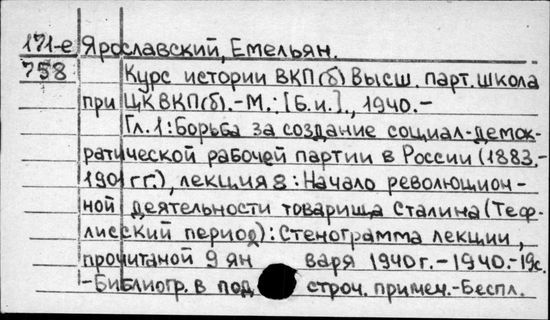 171-е Ярославский, Емельян.
758 Курс истории ВКП(б) Высш. парт. школа
при ЦК ВКП(б). - М.: [Б.и.]., 1940. -
Гл.1: Борьба за создание социал-демок-
ратической рабочей партии в России (1883.-
1901 гг.), лекция 8: Начало революцион-
ной деятельности товарища Сталина (Теф-
лисский период): Стенограмма лекции,
прочитаной 9 ян варя 1940г. - 1940. - 19с.
- Библиогр. в под строч. примеч. - Беспл.